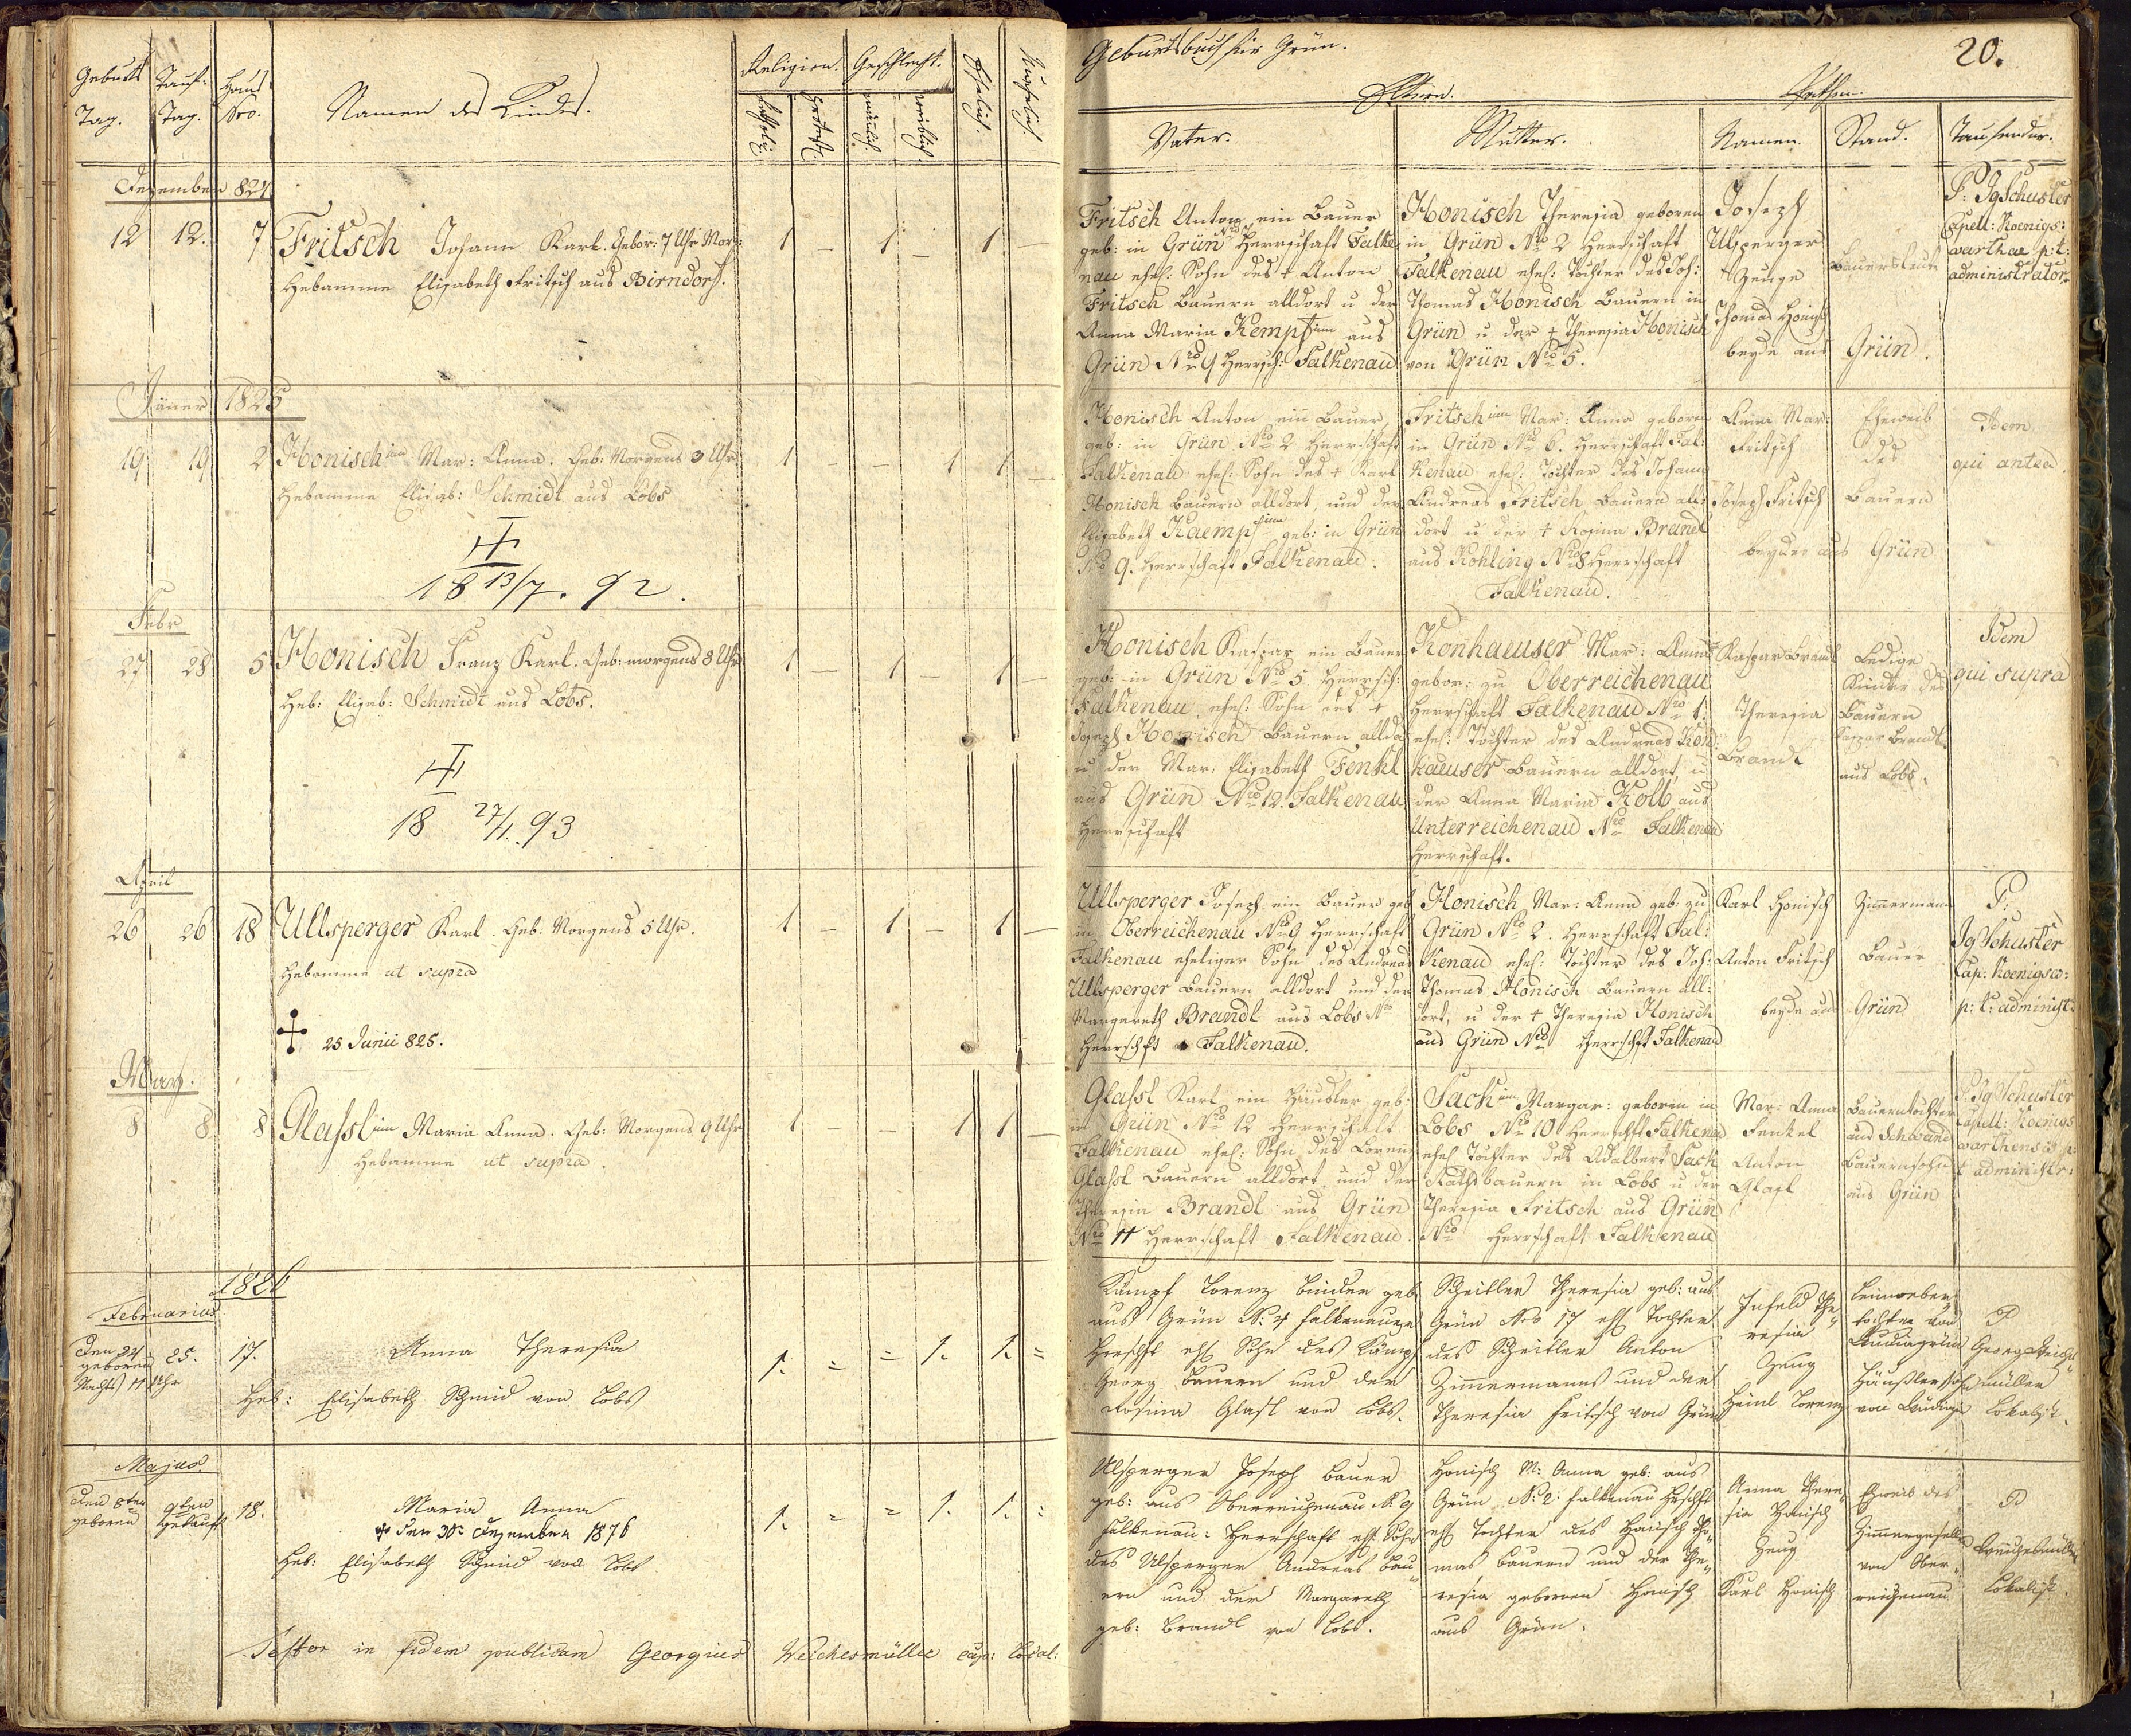 Geburts Tag.
Tauf- Tag.
Haus Nro.
Namen des Kindes.
Religion.
Katholi:
Protest:
Geschlecht.
mänlich
weiblich
Ehelich.
Unehelich
Dezember 824
12 12. 7 Fritsch Johann Karl. Gebor: 7 Uhr Morg:
1 – 1 – 1
Hebamme Elisabeth Fritsch aus Birndorf.
Jäner 1825
19 19 2 Honisch inn Mar: Anna. Geb: Morgens 3 Uhr
1 – – 1 1 –
Hebamme Elisab: Schmidt aus Lobs
18 13/7. 92.
Febr
27 28 5 Honisch Franz Karl. Geb: morgens 8 Uhr
1 – 1 – 1 –
Heb: Elisab: Schmidt aus Lobs.
18 27/1. 93
April
26 26 18 Ullsperger Karl. Geb: Morgens 5 Uhr.
1 – 1 – 1 –
Hebamme ut supra
25 Junii 825.
May.
8 8 8 Glassl inn Maria Anna. Geb: Morgens 9 Uhr
1 – – 1 1 –
Hebamme ut supra.
1826
Februarius
den 24
geboren
Nachts 11 Uhr
25.
17.
Anna Theresia
1. = = 1. 1. =
Heb: Elisabeth Schmid von Lobs
Majus.
den 8ten
geboren
9ten
getauft
18.
Maria Anna
den 30. Dezember 1876
1. = = 1. 1. =
Heb: Elisabeth Schmid von Lobs
Testor in fidem publicam Georgius Weichesmüller cap: local:
Geburtsbuch für Grün.
20.
Eltern.
Pathen.
Vater.
Mutter.
Namen.
Stand.
Taufender.
Fritsch Anton ein Bauer
geb: in Grün Nro Herrschaft Falke
nau ehel: Sohn des + Anton
Fritsch Bauern alldort u der
Anna Maria Kempf inn aus
Grün Nro 9 Herrsch: Falkenau
Honisch Theresia geboren
in Grün Nro 2 Herrschaft
Falkenau ehel: Tochter des Joh:
Thomas Honisch Bauern in
Grün u der + Theresia Honisch
von Grün Nro 5.
Joseph
Ulsperger
Zeuge
Thomas Honisch
beyde aus
Bauersleute
Grün.
P: Ig Schuster
Capell: Koenigs:
warthae p: t:
administrator
Honisch Anton ein Bauer,
geb: in Grün Nro 2 Herrschaft
Falkenau ehel: Sohn des + Karl
Honisch Bauern alldort, und der
Elisabeth Kaempf inn geb: in Grün
Nro 9. Herrschaft Falkenau.
Fritsch inn Mar: Anna geboren
in Grün Nro 6. Herrschaft Fal:
kenau ehel: Tochter des Johann
Andreas Fritsch Bauern all:
dort u der + Rosina Brandl
aus Kohling Nro 8 Herrschaft
Falkenau.
Anna Mar:
Fritsch
Joseph Fritsch
beyde aus
Eheweib
des
Bauern
Grün
Idem
qui antea.
Honisch Kaspar ein Bauer
geb: in Grün Nro 5. Herrsch:
Falkenau ehel: Sohn des +
Joseph Honisch Bauern allda
u der Mar: Elisabeth Fenkl
aus Grün Nro 12. Falkenau
Herrschaft
Konhaeuser Mar: Anna
gebor: zu Oberreichenau
Herrschaft Falkenau Nro 1:
ehel: Tochter des Andreas Kon:
haeuser Bauern alldort, u
der Anna Maria Kolb aus
Unterreichenau Nro Falkenau
Herrschaft.
Kaspar Brandl
Theresia
Brandl
Ledige
Kinder des
Bauern
Kaspar Brandl
aus Lobs.
Idem
qui supra
Ullsperger Joseph ein Bauer geb
in Oberreichenau Nro 9 Herrschaft
Falkenau eheliger Sohn des Andreas
Ullsperger Bauern alldort und der
Margareth Brandl aus Lobs Nro
Herrschft Falkenau.
Honisch Mar: Anna geb: zu
Grün Nro 2. Herrschaft Fal:
kenau ehel: Tochter des Joh:
Thomas Honisch Bauern all:
dort, u der + Theresia Honisch
aus Grün Nro Herrschft Falkenau
Karl Honisch
Anton Fritsch
beyde aus
Zimmermann
Bauer
Grün
P:
Ig Schuster
Cap: Koenigsw:
p: t: administ:
Glassl Karl ein Häusler geb:
in Grün Nro 12 Herrschaft
Falkenau ehel: Sohn des Lorenz
Glassl Bauern alldort, und der
Theresia Brandl aus Grün
Nro 11 Herrschaft Falkenau.
Sack inn Margar: geboren in
Lobs Nro 10 Herrschft Falkena
ehel Tochter des Adalbert Sack
Rathsbauern in Lobs u der
Theresia Fritsch aus Grün
Nro Herrschaft Falkenau
Mar: Anna
Fenkel
Anton
Glassl
Bauerntochter
aus Schwand
Bauernsohn
aus Grün
P. Ig Schuster
Capell: Koenigs
warthensis p:
t administr:
Kämpf Lorenz Binder geb
aus Grün N: 4 Falkenauge
Herschft ehl Sohn des Kämpf
Georg Bauern und der
Rosina Glassl von Lobs.
Scheitler Theresia geb: aus
Grün Nro 17 ehl Tochter
des Scheitler Anton
Zimmermanns und der
Theresia Fritsch von Grün
The
resia
Zeug
Heinl Lorenz
Leinweber
tochter von
Häußlerssohn
P
Georg Weiches
müller
Lokalist.
Ulsperger Joseph Bauer
geb: aus Oberreichenau N. 9
Falkenau: Herrschaft ehl Sohn
des Ulsperger Andreas Bau
ern und der Margareth
geb: Brandl von Lobs.
Honisch M: Anna geb: aus
Grün N: 2: Falkenau Hrschft
ehl Tochter des Honisch Tho
mas Bauern und der The
resia gebornen Honisch
aus Grün.
Anna There
sia Honisch
Zeug
Karl Honisch
Eheweib des
Zimmergesellen
von Ober
reichenau
P
Weichesmüller
Lokalist.